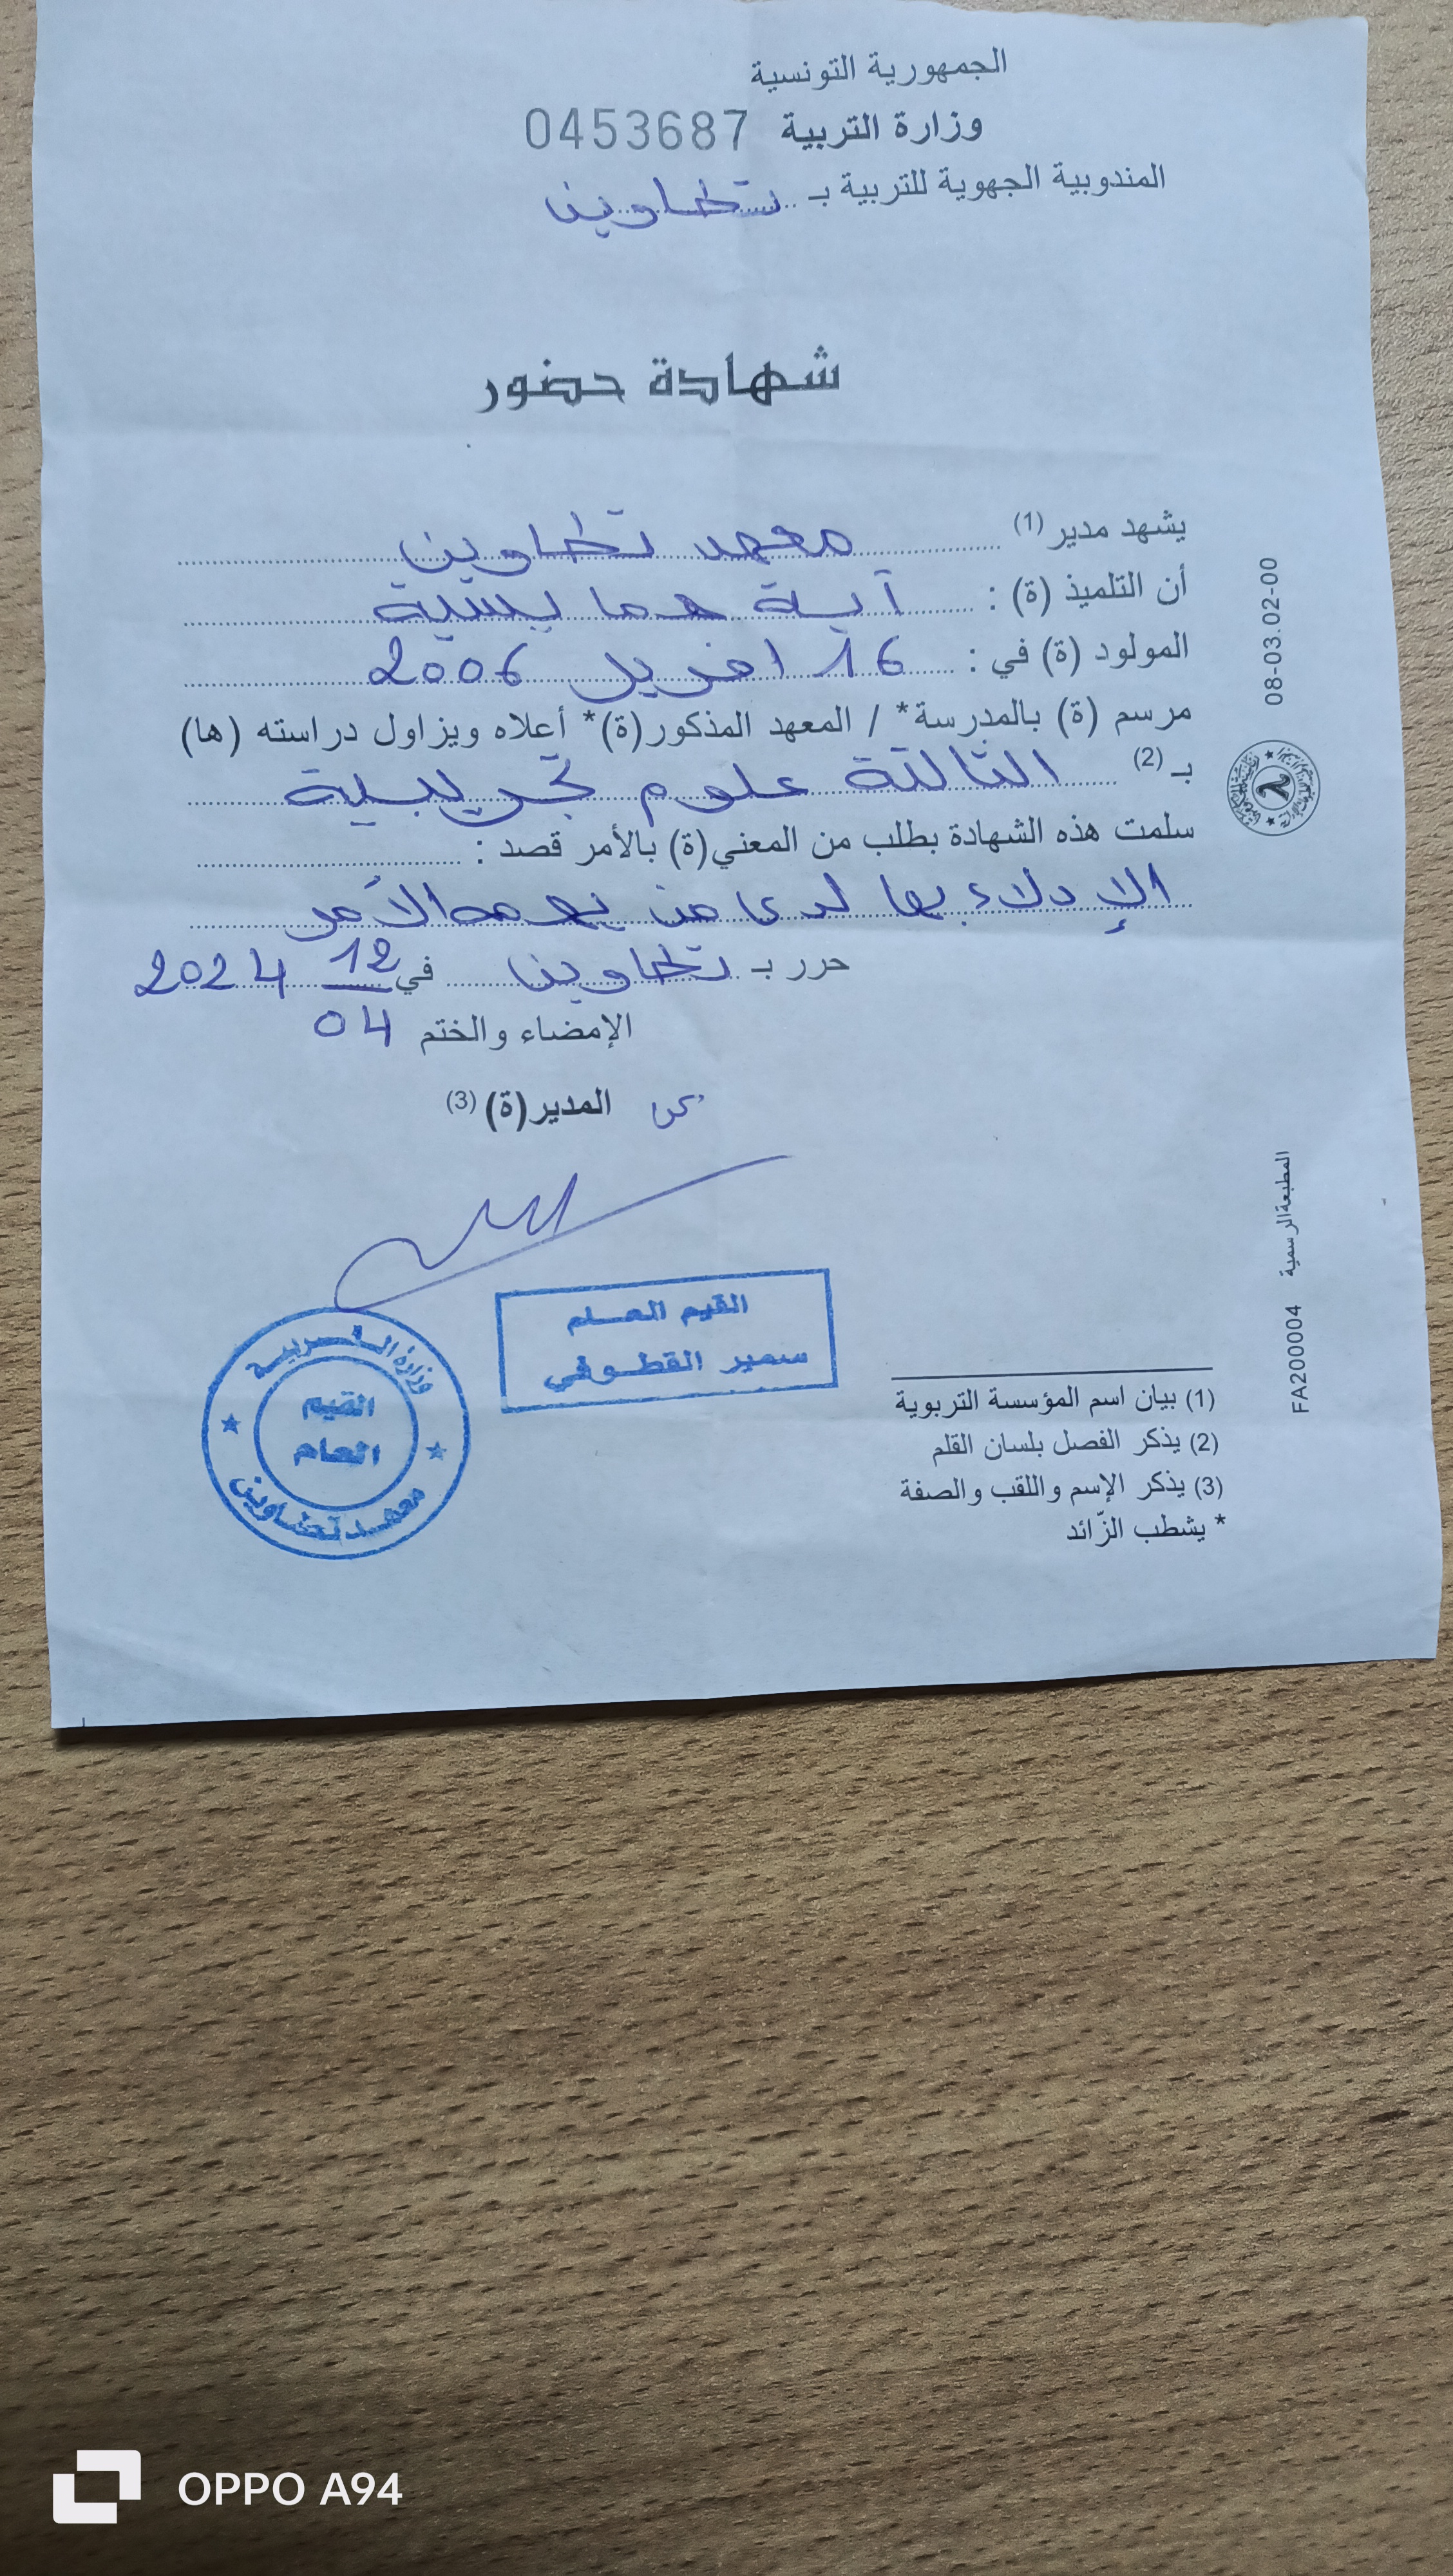 الجمهورية التونسية
وزارة التربية 0453687
المندوبية الجهوية للتربية بـ تطاوين
شهادة حضور
يشهد مدير (1) معهد تطاوين
أن التلميذ (ة) : آية همايسية
المولود (ة) في : 16 افريل 2006
مرسم (ة) بالمدرسة* / المعهد المذكور(ة)* أعلاه ويزاول دراسته (ها)
بـ (2) الثالثة علوم تجريبية
سلمت هذه الشهادة بطلب من المعني(ة) بالأمر قصد :
الإدلاء بها لدى من يهمه الأمر
حرر بـ تطاوين في 12 2024
الإمضاء والختم 04
عن المدير(ة) (3)
القيم العام
سمير القطوفي
وزارة التربية
القيم
العام
معهد تطاوين
(1) بيان اسم المؤسسة التربوية
(2) يذكر الفصل بلسان القلم
(3) يذكر الإسم واللقب والصفة
* يشطب الزّائد
08-03.02-00
FA200004 المطبعة الرسمية
OPPO A94